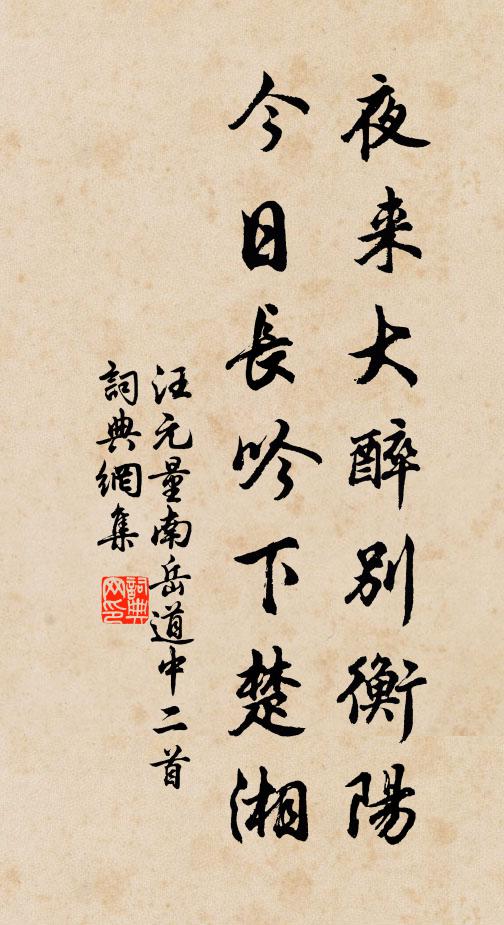 夜来大醉別衡陽
今日長吟下楚湘
汪元量南岳道中二首
詞典網集
詞典網印